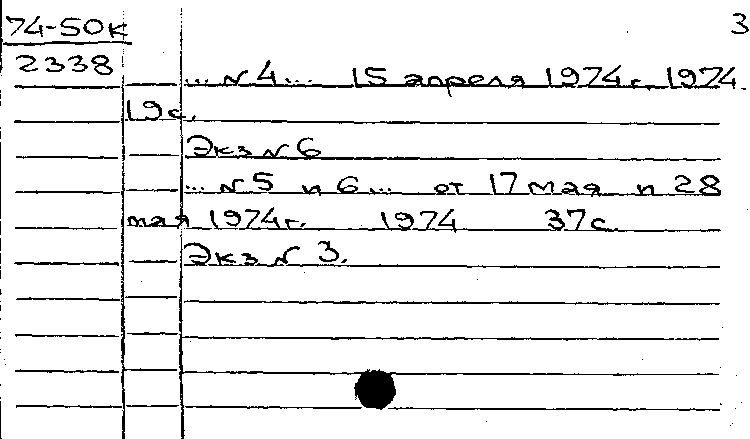 74-50к 3
2338
... N4... 15 апреля 1974г. 1974.
19с.
Экз N 6
... N5 и 6... от 17 мая и 28
мая 1974г. 1974 37с.
Экз N 3.